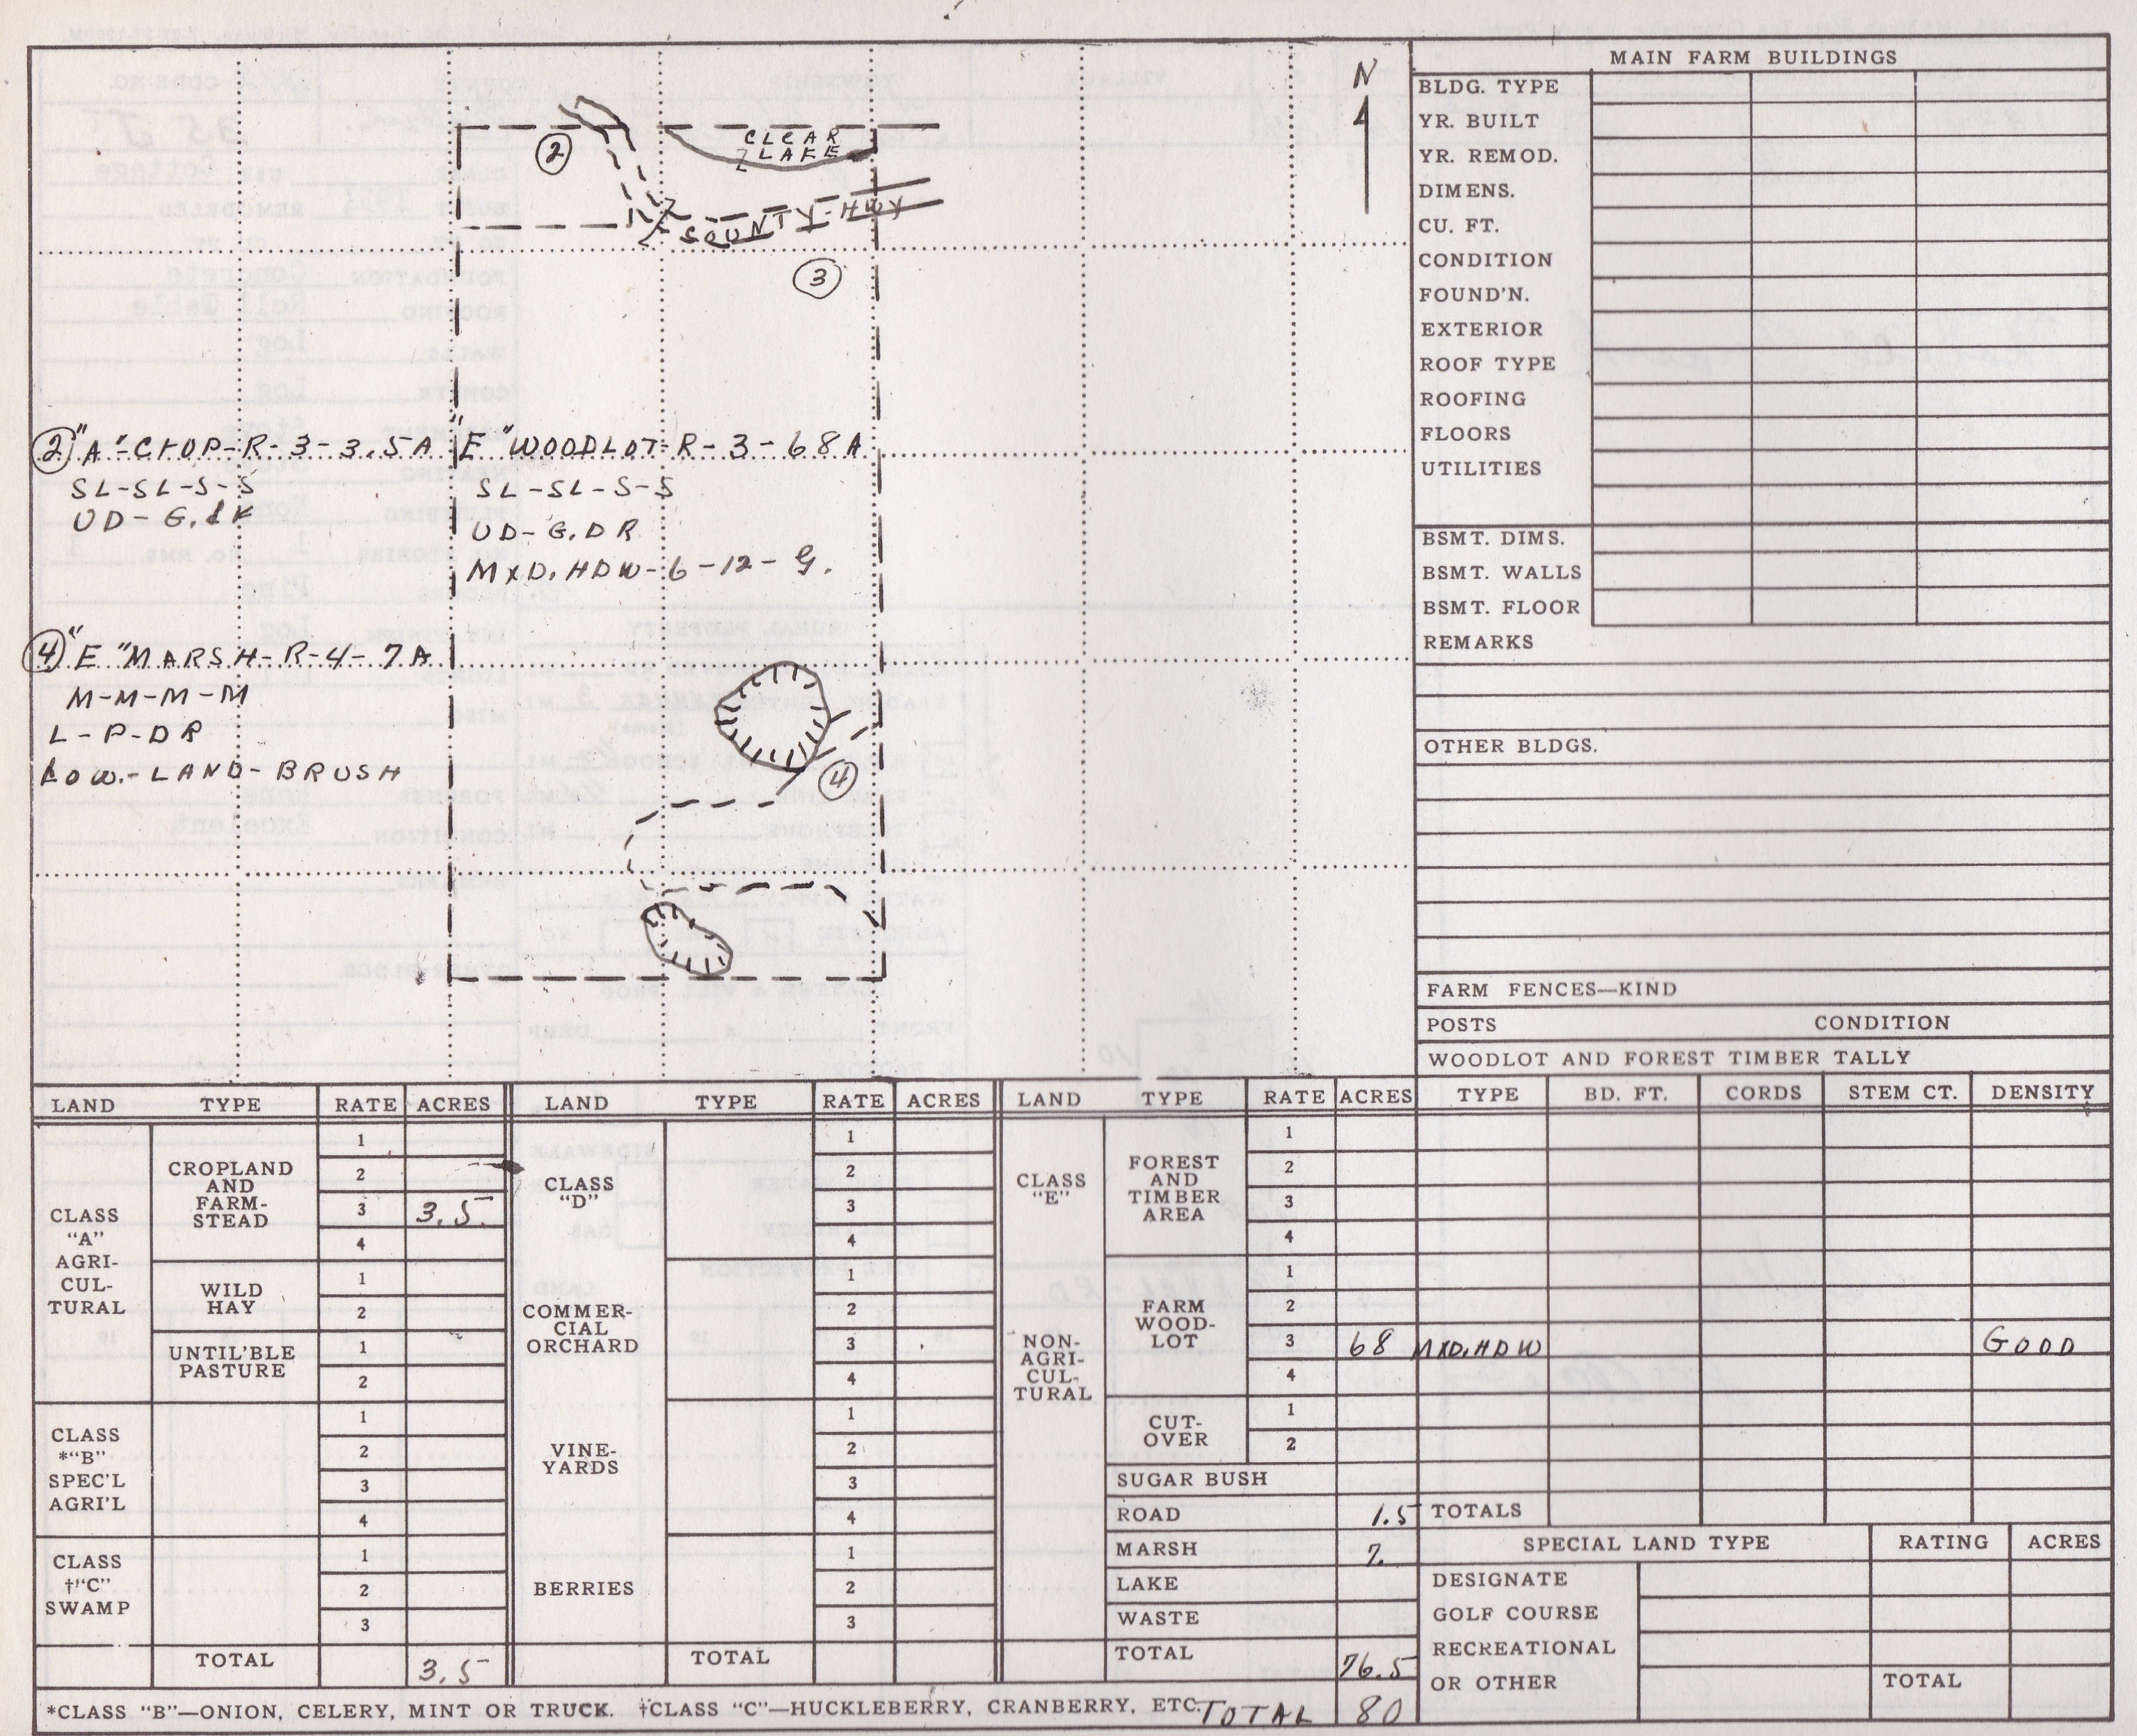 N
CLEAR
LAKE
2
COUNTY-HWY
3
2 "A"-CROP-R-3-3.5A
SL-SL-S-S
UD-G.
"E" WOODLOT-R-3-68A
SL-SL-S-S
UD-G.DR
MXD.HDW-6-12-G.
4 "E" MARSH-R-4-7A
M-M-M-M
L-P-DR
LOW.-LAND-BRUSH
4
MAIN FARM BUILDINGS
BLDG. TYPE
YR. BUILT
YR. REMOD.
DIMENS.
CU. FT.
CONDITION
FOUND'N.
EXTERIOR
ROOF TYPE
ROOFING
FLOORS
UTILITIES
BSMT. DIMS.
BSMT. WALLS
BSMT. FLOOR
REMARKS
OTHER BLDGS.
FARM FENCES—KIND
POSTS CONDITION
WOODLOT AND FOREST TIMBER TALLY
LAND TYPE RATE ACRES LAND TYPE RATE ACRES LAND TYPE RATE ACRES TYPE BD. FT. CORDS STEM CT. DENSITY
CLASS
"A"
AGRI-
CUL-
TURAL
CROPLAND
AND
FARM-
STEAD
1
2
3 3.5
4
WILD
HAY
1
2
UNTIL'BLE
PASTURE
1
2
CLASS
*"B"
SPEC'L
AGRI'L
1
2
3
4
CLASS
†"C"
SWAMP
1
2
3
TOTAL 3.5
CLASS
"D"
1
2
3
4
COMMER-
CIAL
ORCHARD
1
2
3
4
VINE-
YARDS
1
2
3
4
BERRIES
1
2
3
TOTAL
CLASS
"E"
NON-
AGRI-
CUL-
TURAL
FOREST
AND
TIMBER
AREA
1
2
3
4
FARM
WOOD-
LOT
1
2
3 68 MXD.HDW GOOD
4
CUT-
OVER
1
2
SUGAR BUSH
ROAD 1.5
MARSH 7.
LAKE
WASTE
TOTAL 76.5
TOTALS
SPECIAL LAND TYPE RATING ACRES
DESIGNATE
GOLF COURSE
RECREATIONAL
OR OTHER
TOTAL
*CLASS "B"—ONION, CELERY, MINT OR TRUCK. †CLASS "C"—HUCKLEBERRY, CRANBERRY, ETC. TOTAL 80